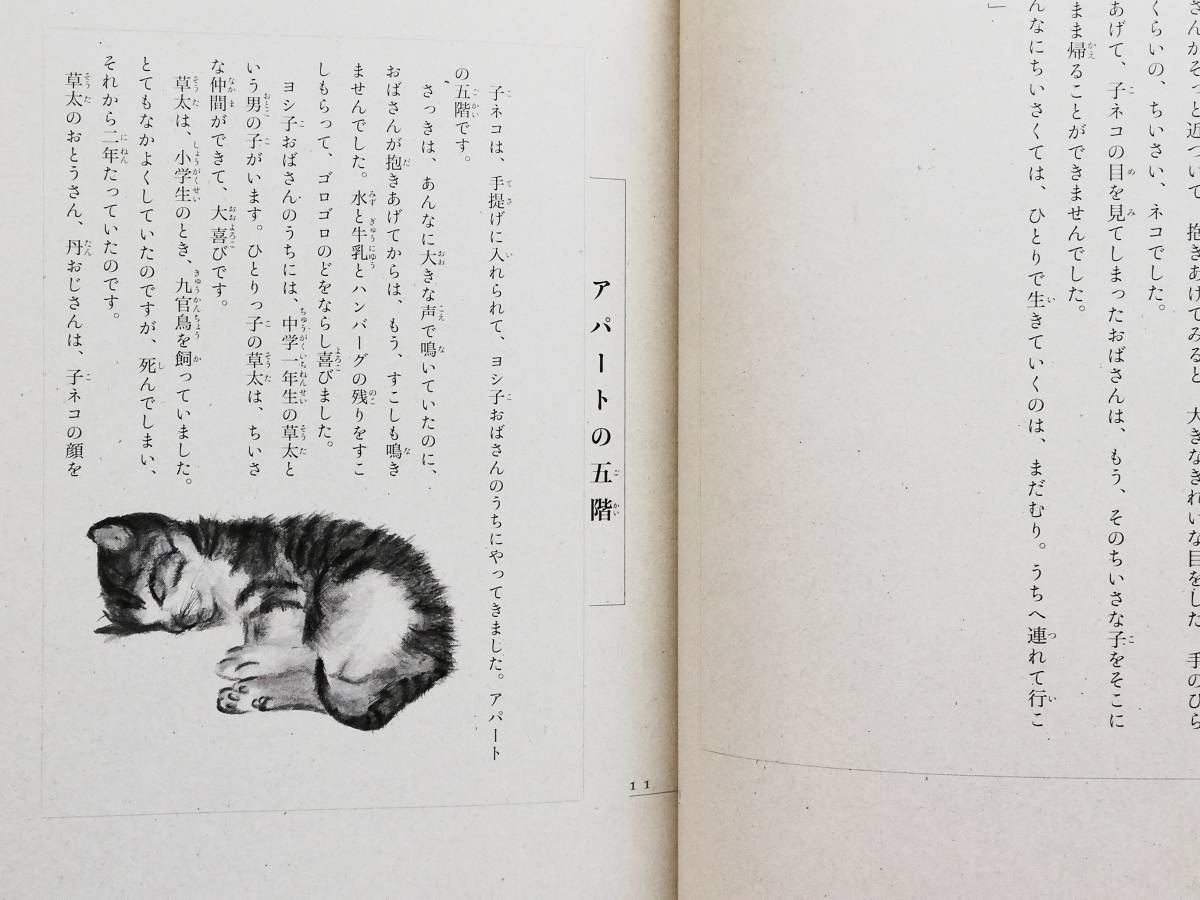 さんがそっと近づいて、抱きあげてみると、大きなきれいな目をした、手のひら
くらいの、ちいさい、ネコでした。
あげて、子ネコの目を見てしまったおばさんは、もう、そのちいさな子をそこに
まま帰ることができませんでした。
んなにちいさくては、ひとりで生きていくのは、まだむり。うちへ連れて行こ
」
アパートの五階
子ネコは、手提げに入れられて、ヨシ子おばさんのうちにやってきました。アパート
の五階です。
さっきは、あんなに大きな声で鳴いていたのに、
おばさんが抱きあげてからは、もう、すこしも鳴き
ませんでした。水と牛乳とハンバーグの残りをすこ
しもらって、ゴロゴロのどをならし喜びました。
ヨシ子おばさんのうちには、中学一年生の草太と
いう男の子がいます。ひとりっ子の草太は、ちいさ
な仲間ができて、大喜びです。
草太は、小学生のとき、九官鳥を飼っていました。
とてもなかよくしていたのですが、死んでしまい、
それから二年たっていたのです。
草太のおとうさん、丹おじさんは、子ネコの顔を
11